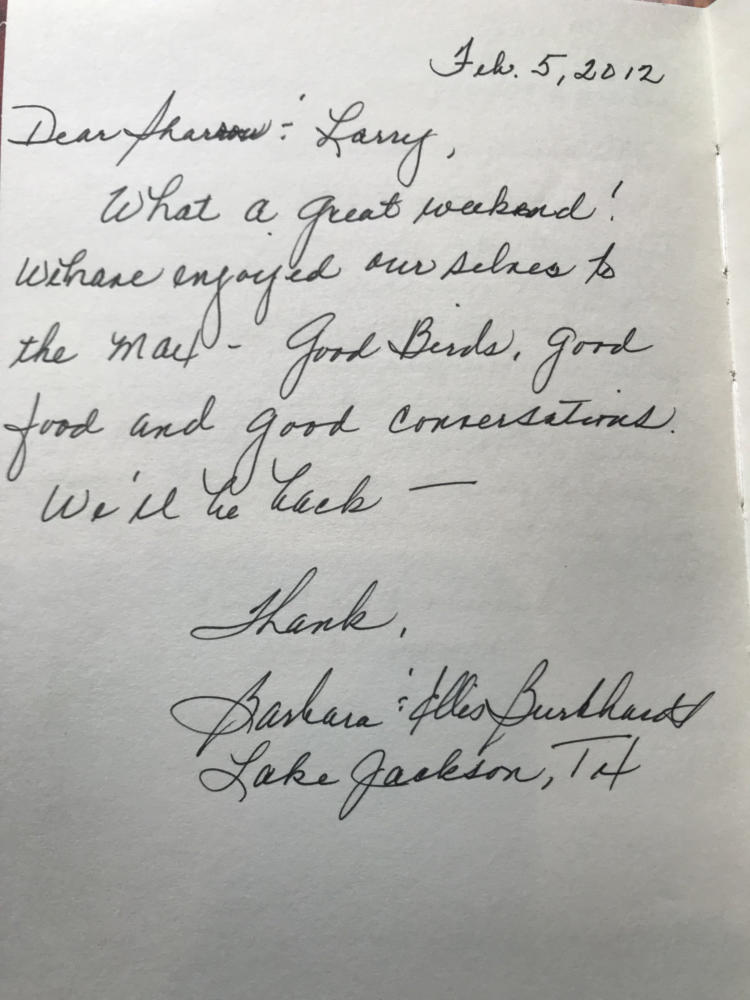 Feb. 5, 2012
Dear Sharron & Larry,
What a great weekend!
We have enjoyed ourselves to
the max - Good Birds, good
food and good conversations.
We'll be back —
Thank,
Barbara & Ellis Burkhardt
Lake Jackson, TX